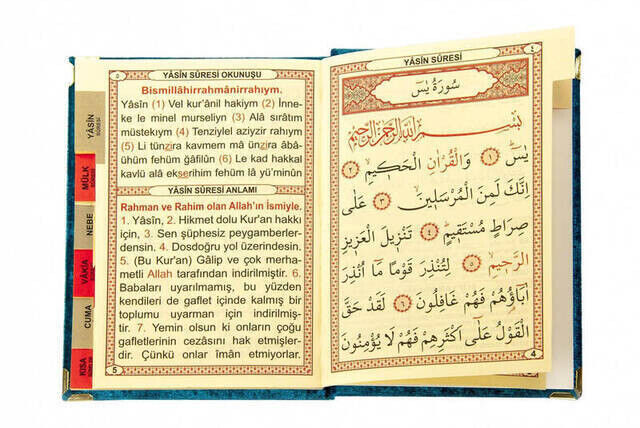 ٥ YÂSİN SÛRESİ OKUNUŞU
Bismillâhirrahmânirrahıym.
Yâsîn (1) Vel kur'ânil hakiym (2) İnne-
ke le minel murseliyn (3) Alâ sırâtım
müstekıym (4) Tenziylel aziyzir rahıym
(5) Li tünzira kavmem mâ ünzira âbâ-
ühüm fehüm ğâfilûn (6) Le kad hakkal
kavlü alâ ekserihim fehüm lâ yü'minûn
YÂSİN SÛRESİ ANLAMI
Rahman ve Rahim olan Allah'ın İsmiyle.
1. Yâsîn, 2. Hikmet dolu Kur'an hakkı
için, 3. Sen şüphesiz peygamberler-
densin. 4. Dosdoğru yol üzerindesin.
5. (Bu Kur'an) Gâlip ve çok merha-
metli Allah tarafından indirilmiştir. 6.
Babaları uyarılmamış, bu yüzden
kendileri de gaflet içinde kalmış bir
toplumu uyarman için indirilmiş-
tir. 7. Yemin olsun ki onların çoğu
gafletlerinin cezasını hak etmişler-
dir. Çünkü onlar îmân etmiyorlar.
5
YÂSİN
SÛRESİ
MÜLK
SÛRESİ
NEBE
VÂKIA
CUMA
KISA
YÂSİN SÛRESİ ٤
سُورَةُ يٰسٓ
بِسْمِ اللّٰهِ الرَّحْمٰنِ الرَّحِيمِ
يٰسٓ ﴿١﴾ وَالْقُرْاٰنِ الْحَكِيمِ ﴿٢﴾
اِنَّكَ لَمِنَ الْمُرْسَلِينَ ﴿٣﴾ عَلٰى
صِرَاطٍ مُسْتَقِيمٍ ﴿٤﴾ تَنْزِيلَ الْعَزِيزِ
الرَّحِيمِ ﴿٥﴾ لِتُنْذِرَ قَوْمًا مَٓا اُنْذِرَ
اٰبَٓاؤُهُمْ فَهُمْ غَافِلُونَ ﴿٦﴾ لَقَدْ حَقَّ
الْقَوْلُ عَلٰٓى اَكْثَرِهِمْ فَهُمْ لَا يُؤْمِنُونَ
4